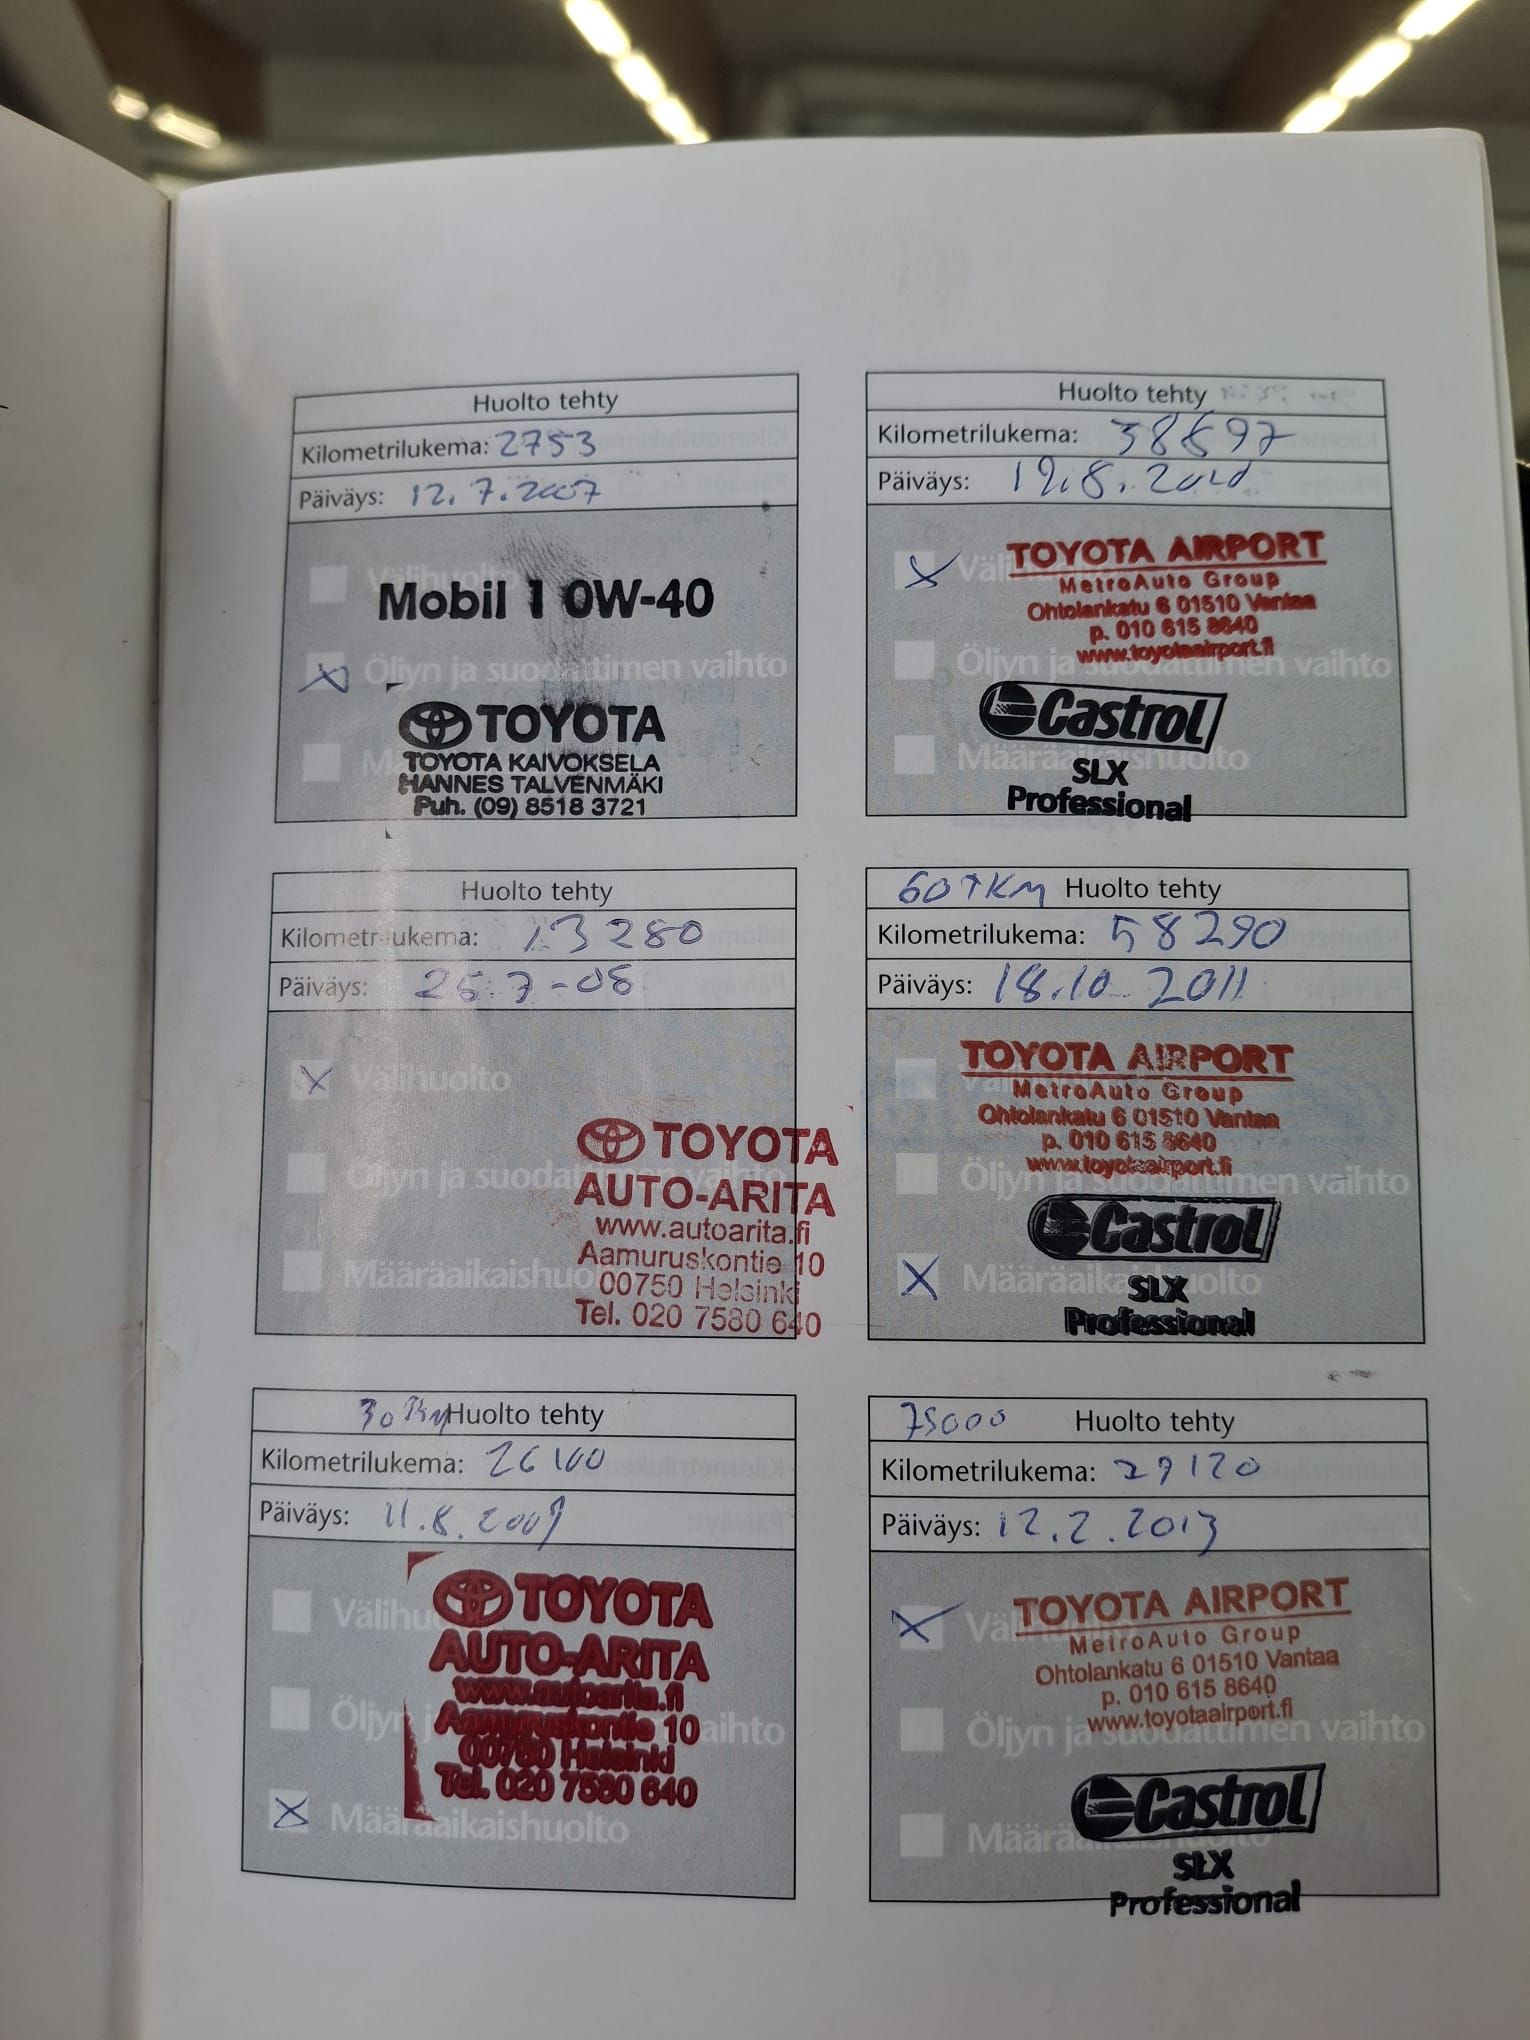 Huolto tehty
Kilometrilukema: 2753
Päiväys: 12.7.2007
Välihuolto
Mobil 1 0W-40
Öljyn ja suodattimen vaihto
TOYOTA
TOYOTA KAIVOKSELA
HANNES TALVENMÄKI
Puh. (09) 8518 3721
Huolto tehty
Kilometrilukema: 13280
Päiväys: 25.7-08
Välihuolto
Öljyn ja suodattimen vaihto
Määräaikaishuolto
TOYOTA
AUTO-ARITA
www.autoarita.fi
Aamuruskontie 10
00750 Helsinki
Tel. 020 7580 640
30 TKM Huolto tehty
Kilometrilukema: 26100
Päiväys: 11.8.2009
Välihuolto
Öljyn ja suodattimen vaihto
Määräaikaishuolto
TOYOTA
AUTO-ARITA
www.autoarita.fi
Aamuruskontie 10
00750 Helsinki
Tel. 020 7580 640
Huolto tehty
Kilometrilukema: 38697
Päiväys: 19.8.2010
Välihuolto
TOYOTA AIRPORT
MetroAuto Group
Ohtolankatu 6 01510 Vantaa
p. 010 615 8640
www.toyotaairport.fi
Öljyn ja suodattimen vaihto
Castrol
Määräaikaishuolto
SLX
Professional
60 TKM Huolto tehty
Kilometrilukema: 58290
Päiväys: 18.10.2011
TOYOTA AIRPORT
MetroAuto Group
Ohtolankatu 6 01510 Vantaa
p. 010 615 8640
www.toyotaairport.fi
Öljyn ja suodattimen vaihto
Castrol
Määräaikaishuolto
SLX
Professional
75000 Huolto tehty
Kilometrilukema: 79120
Päiväys: 12.2.2013
Välihuolto
TOYOTA AIRPORT
MetroAuto Group
Ohtolankatu 6 01510 Vantaa
p. 010 615 8640
www.toyotaairport.fi
Öljyn ja suodattimen vaihto
Castrol
Määräaikaishuolto
SLX
Professional